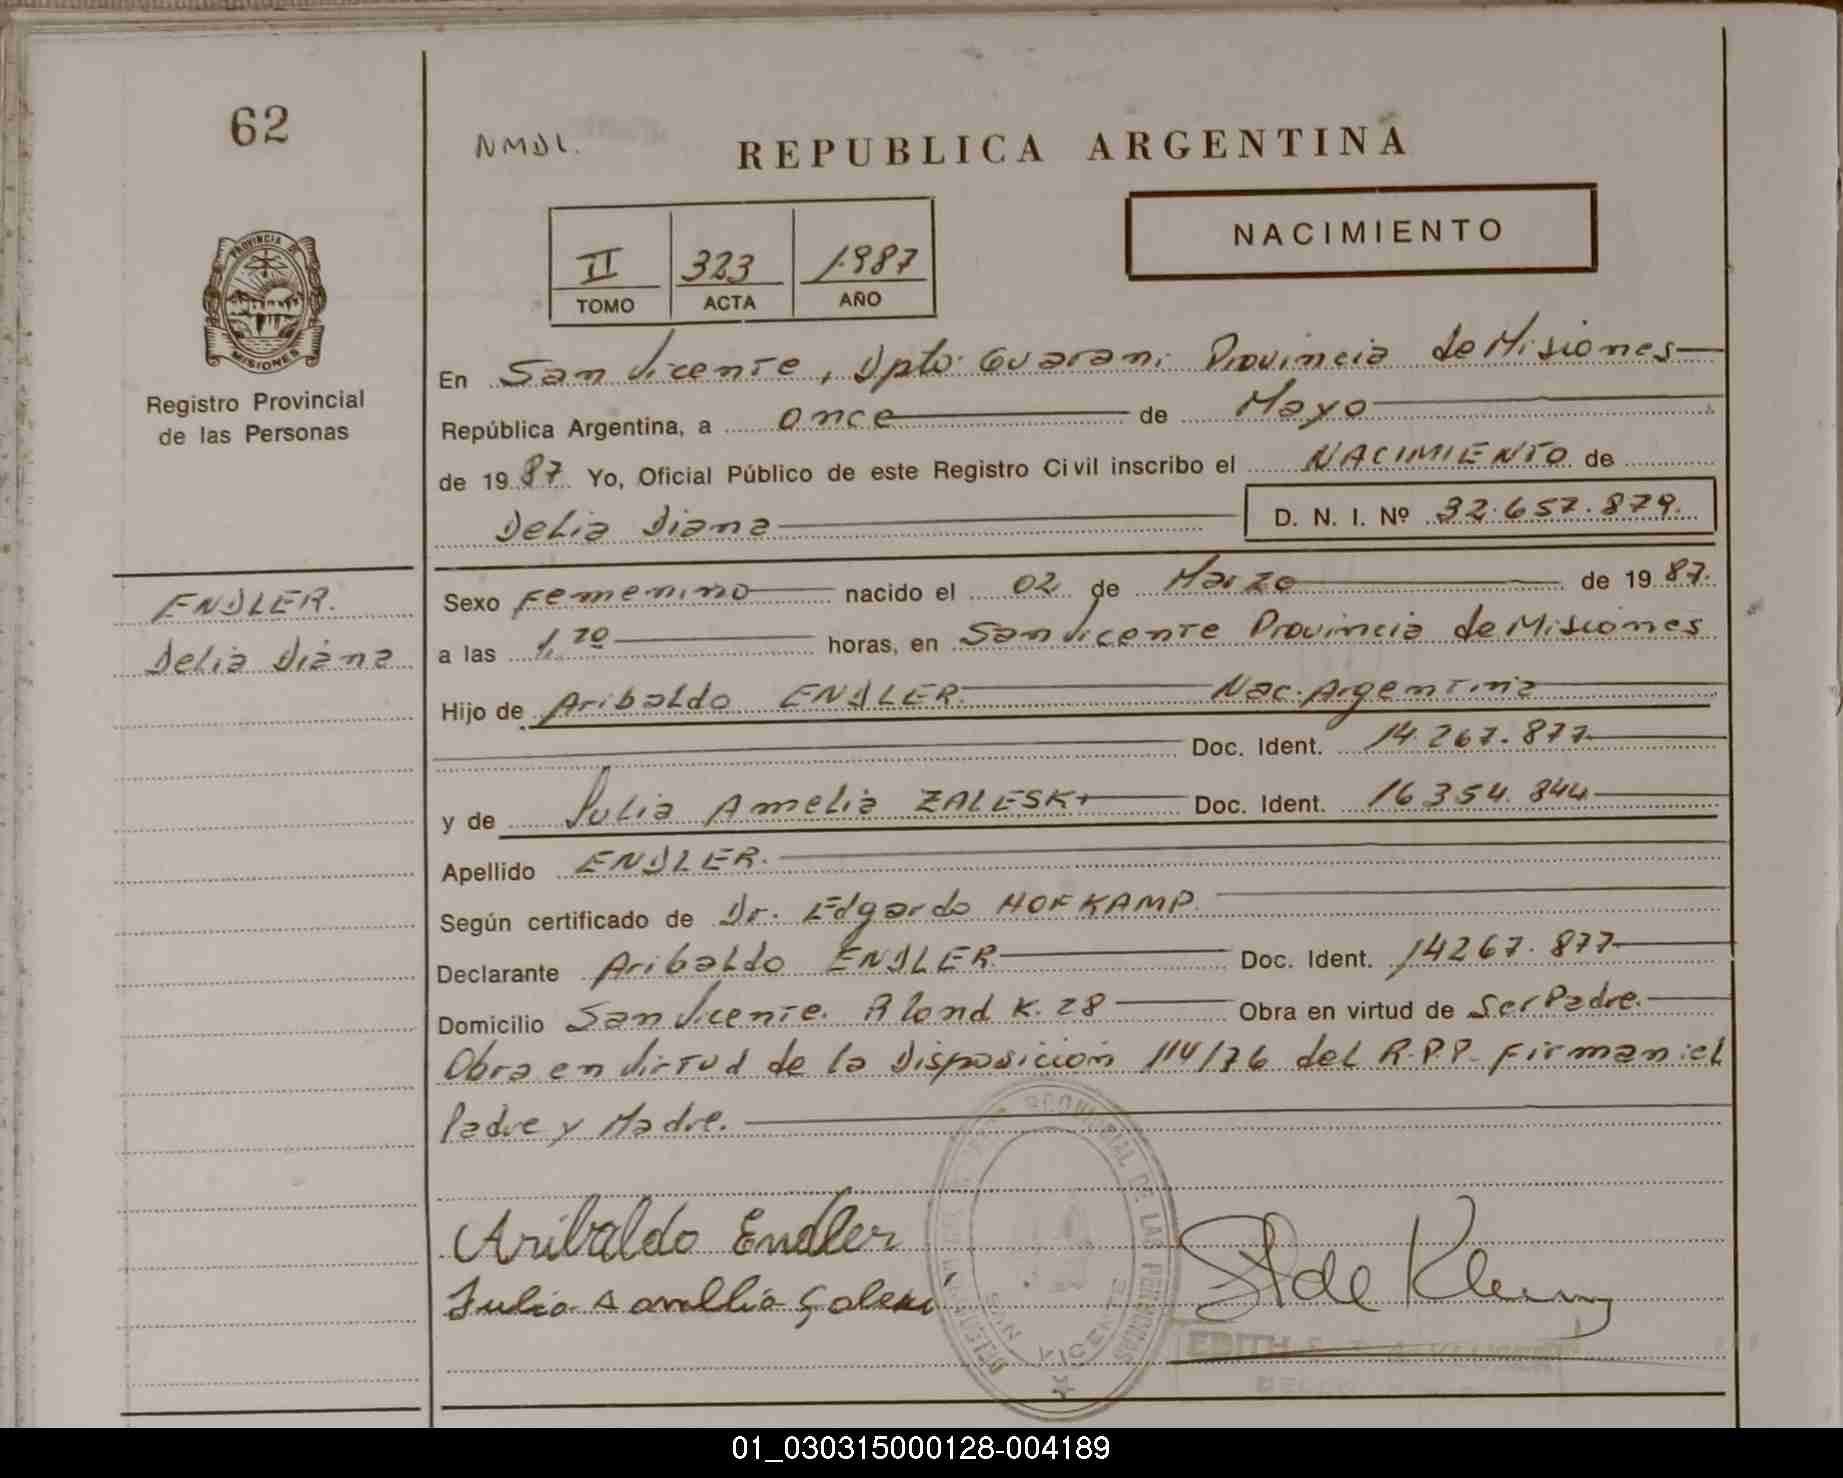 62
NMDL.
REPUBLICA ARGENTINA
NACIMIENTO
II 323 1987
TOMO ACTA AÑO
PROVINCIA DE
MISIONES
Registro Provincial
de las Personas
En San Vicente, Dpto. Guarani Provincia de Misiones
República Argentina, a once de Mayo
de 1987. Yo, Oficial Público de este Registro Civil inscribo el NACIMIENTO de
Delia Diana D. N. I. Nº 32.657.879.
ENDLER.
Delia Diana
Sexo Femenino nacido el 02 de Marzo de 1987.
a las horas, en San Vicente Provincia de Misiones
Hijo de Aribaldo ENDLER. Nac. Argentina
Doc. Ident. 14.267.877
y de Julia Amelia ZALESKI Doc. Ident. 16.354.844
Apellido ENDLER.
Según certificado de Dr. Edgardo HOFKAMP.
Declarante Aribaldo ENDLER Doc. Ident. 14267.877
Domicilio San Vicente. K. 28 Obra en virtud de Ser Padre.
Obra en Virtud de la Disposición 114/76 del R.P.P. Firman: el
Padre y Madre.
Aribaldo Endler
Julia
PROVINCIAL DE LAS PERSONAS
SAN VICENTE
EDITH
01_030315000128-004189